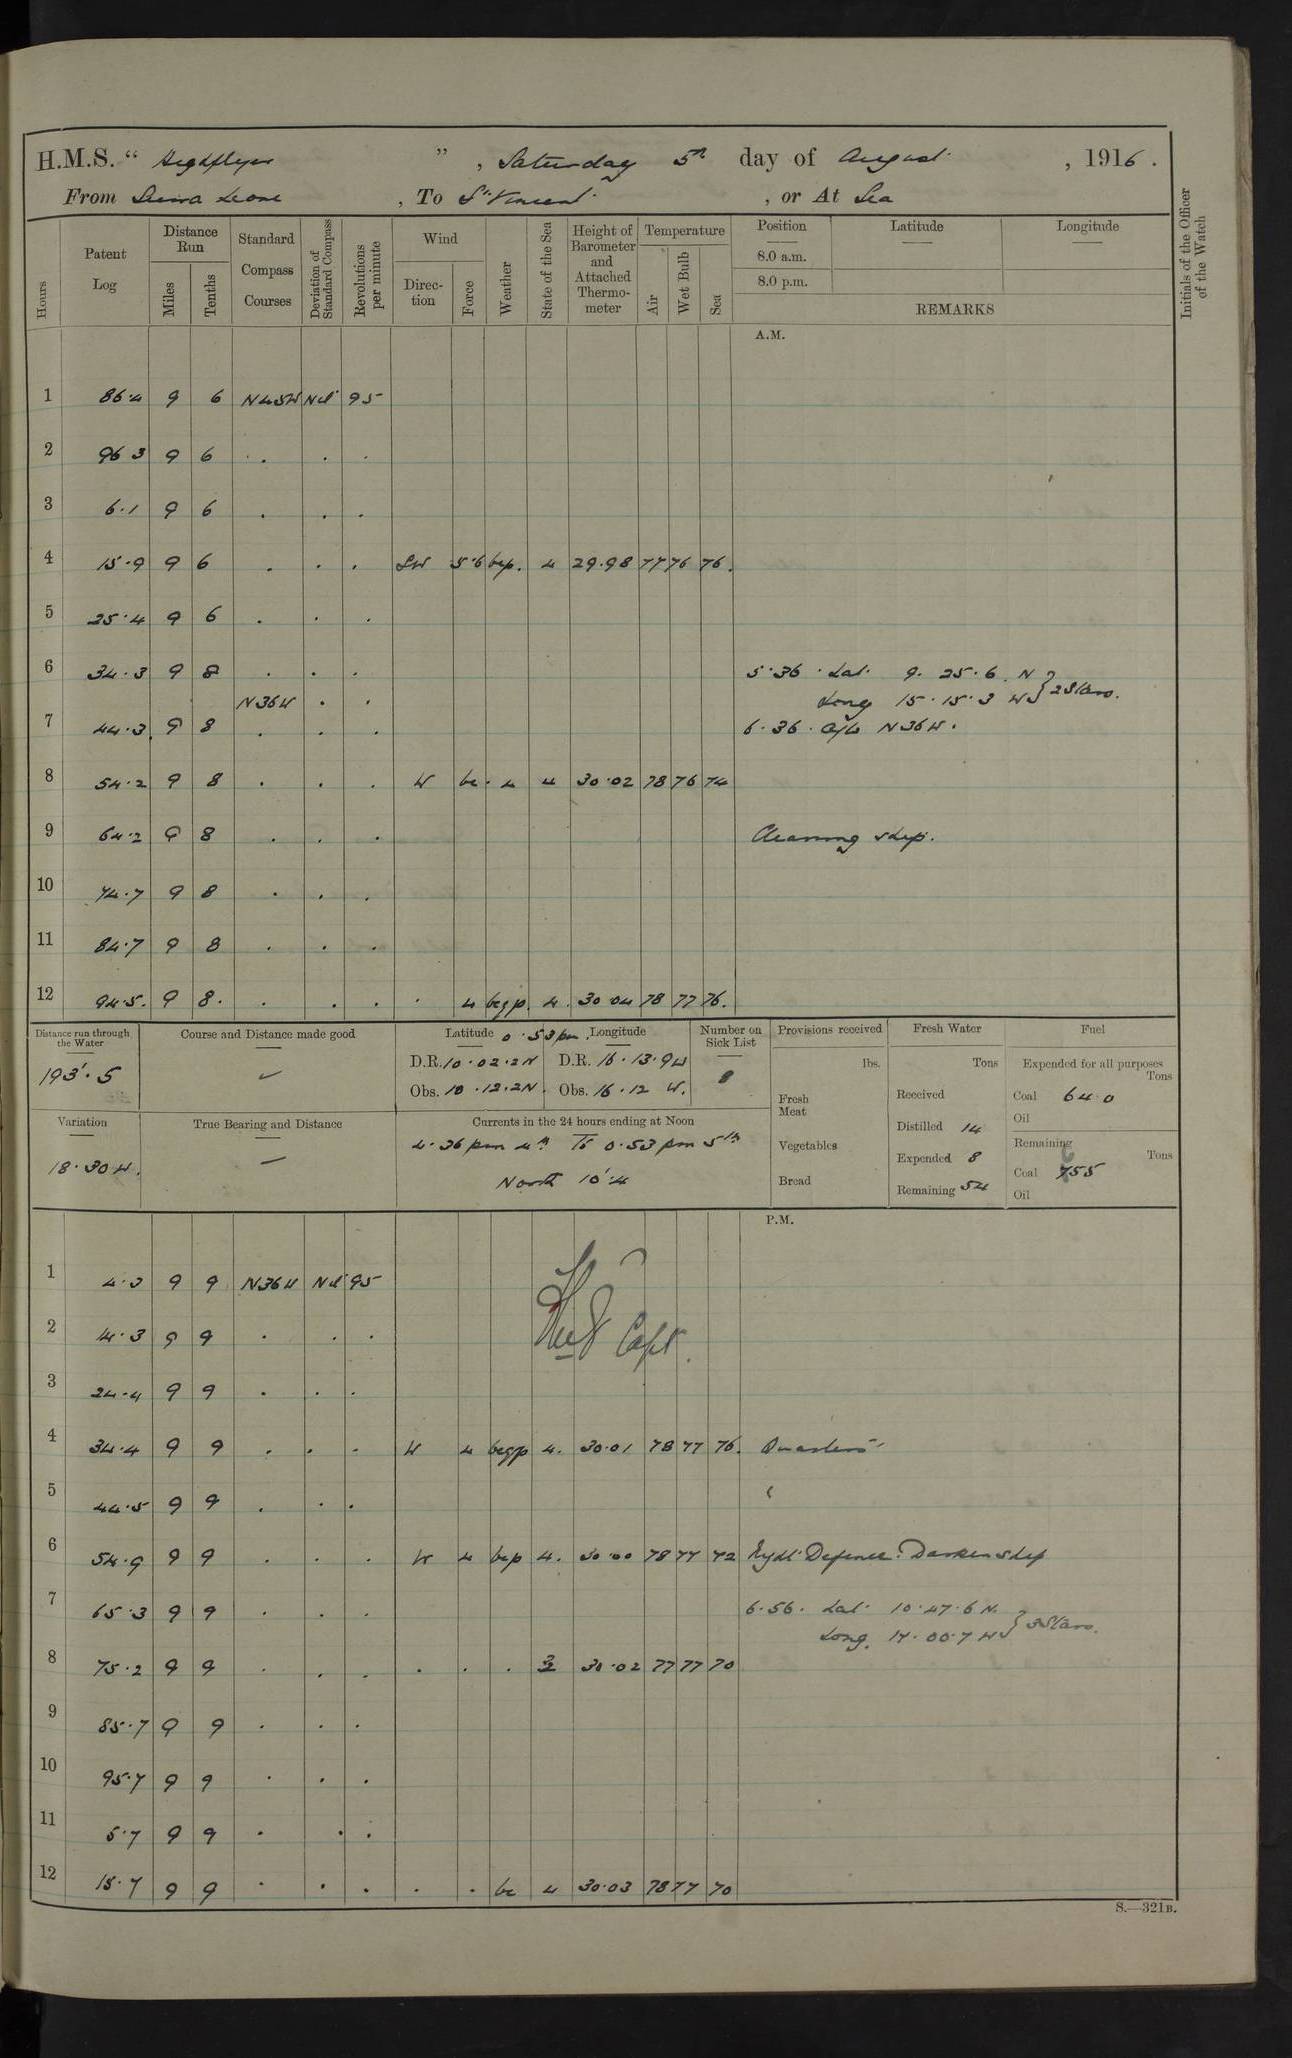 H.M.S. " Highflyer ", Saturday 5th day of August, 1916.
From Sierra Leone, To St Vincent, or At Sea
Hours
Patent Log
Distance Run
Miles
Tenths
Standard Compass Courses
Deviation of Standard Compass
Revolutions per minute
Wind
Direction
Force
Weather
State of the Sea
Height of Barometer and Attached Thermometer
Temperature
Air
Wet Bulb
Sea
Position
Latitude
Longitude
8.0 a.m.
8.0 p.m.
REMARKS
Initials of the Officer of the Watch
A.M.
1 86.4 9 6 N45W Nil 95
2 96 3 9 6 . . .
3 6.1 9 6 . . .
4 15.9 9 6 . . . SW 5.6 bcp. 4 29.98 77 76 76.
5 25.4 9 6 . . .
6 34.3 9 8 . . . 5.36 . Lat. 9. 25.6. N } 2 Stars.
N36W . . Long 15.15.3 W
7 44.3 9 8 . . . 6.36. a/c N36W.
8 54.2 9 8 . . . W bc. 4 4 30.02 78 76 74
9 64.2 9 8 . . . Cleaning ship.
10 74.7 9 8 . . .
11 84.7 9 8 . . .
12 94.5. 9 8. . . . . 4 bcgp. 4. 30 04 78 77 76.
Distance run through the Water
193'.5
Course and Distance made good
Latitude 0.53pm. Longitude
D.R. 10.02.2N D.R. 16.13.9W
Obs. 10.12.2N. Obs. 16.12 W.
Number on Sick List
8
Provisions received
lbs.
Fresh Meat
Vegetables
Bread
Fresh Water
Tons
Received
Distilled 14
Expended 8
Remaining 54
Fuel
Expended for all purposes
Tons
Coal 64.0
Oil
Remaining
Tons
Coal 655
Oil
Variation
18.30W.
True Bearing and Distance
—
Currents in the 24 hours ending at Noon
4.36pm 4th To 0.53pm 5th
North 10'.4
P.M.
1 4.3 9 9 N36W Nil 95
2 14.3 9 9 . . .
Capt.
3 24.4 9 9 . . .
4 34.4 9 9 . . . W 4 bcgp 4. 30.01 78 77 76. Quarters
5 44.5 9 9 . . .
6 54.9 9 9 . . . W 4 bcp 4. 30.00 78 77 72 Night Defence. Darken ship
7 65.3 9 9 . . . 6.56. Lat. 10.47.6 N. } 3 Stars.
Long. 17.00.7 W
8 75.2 9 9 . . . . . . 3 30.02 77 77 70
9 85.7 9 9 . . .
10 95.7 9 9 . . .
11 5.7 9 9 . . .
12 15.7 9 9 . . . . . bc 4 30.03 78 77 70
S.—321B.